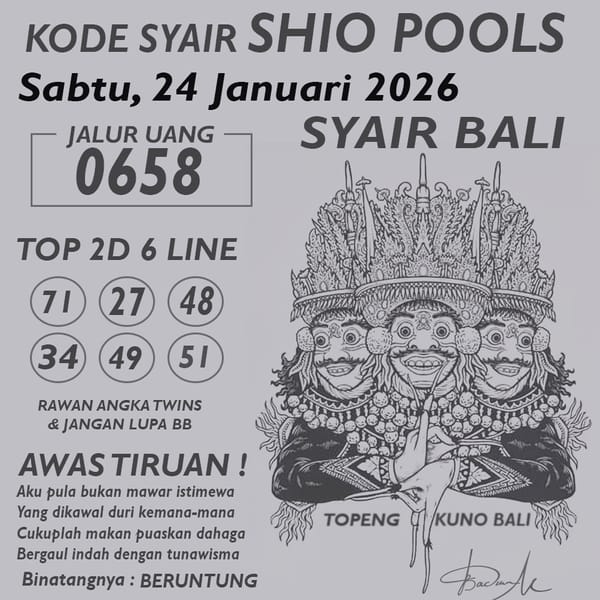 KODE SYAIR SHIO POOLS
Sabtu, 24 Januari 2026
SYAIR BALI
JALUR UANG
0658
TOP 2D 6 LINE
71 27 48
34 49 51
RAWAN ANGKA TWINS
& JANGAN LUPA BB
AWAS TIRUAN !
Aku pula bukan mawar istimewa
Yang dikawal duri kemana-mana
Cukuplah makan puaskan dahaga
Bergaul indah dengan tunawisma
Binatangnya : BERUNTUNG
TOPENG KUNO BALI